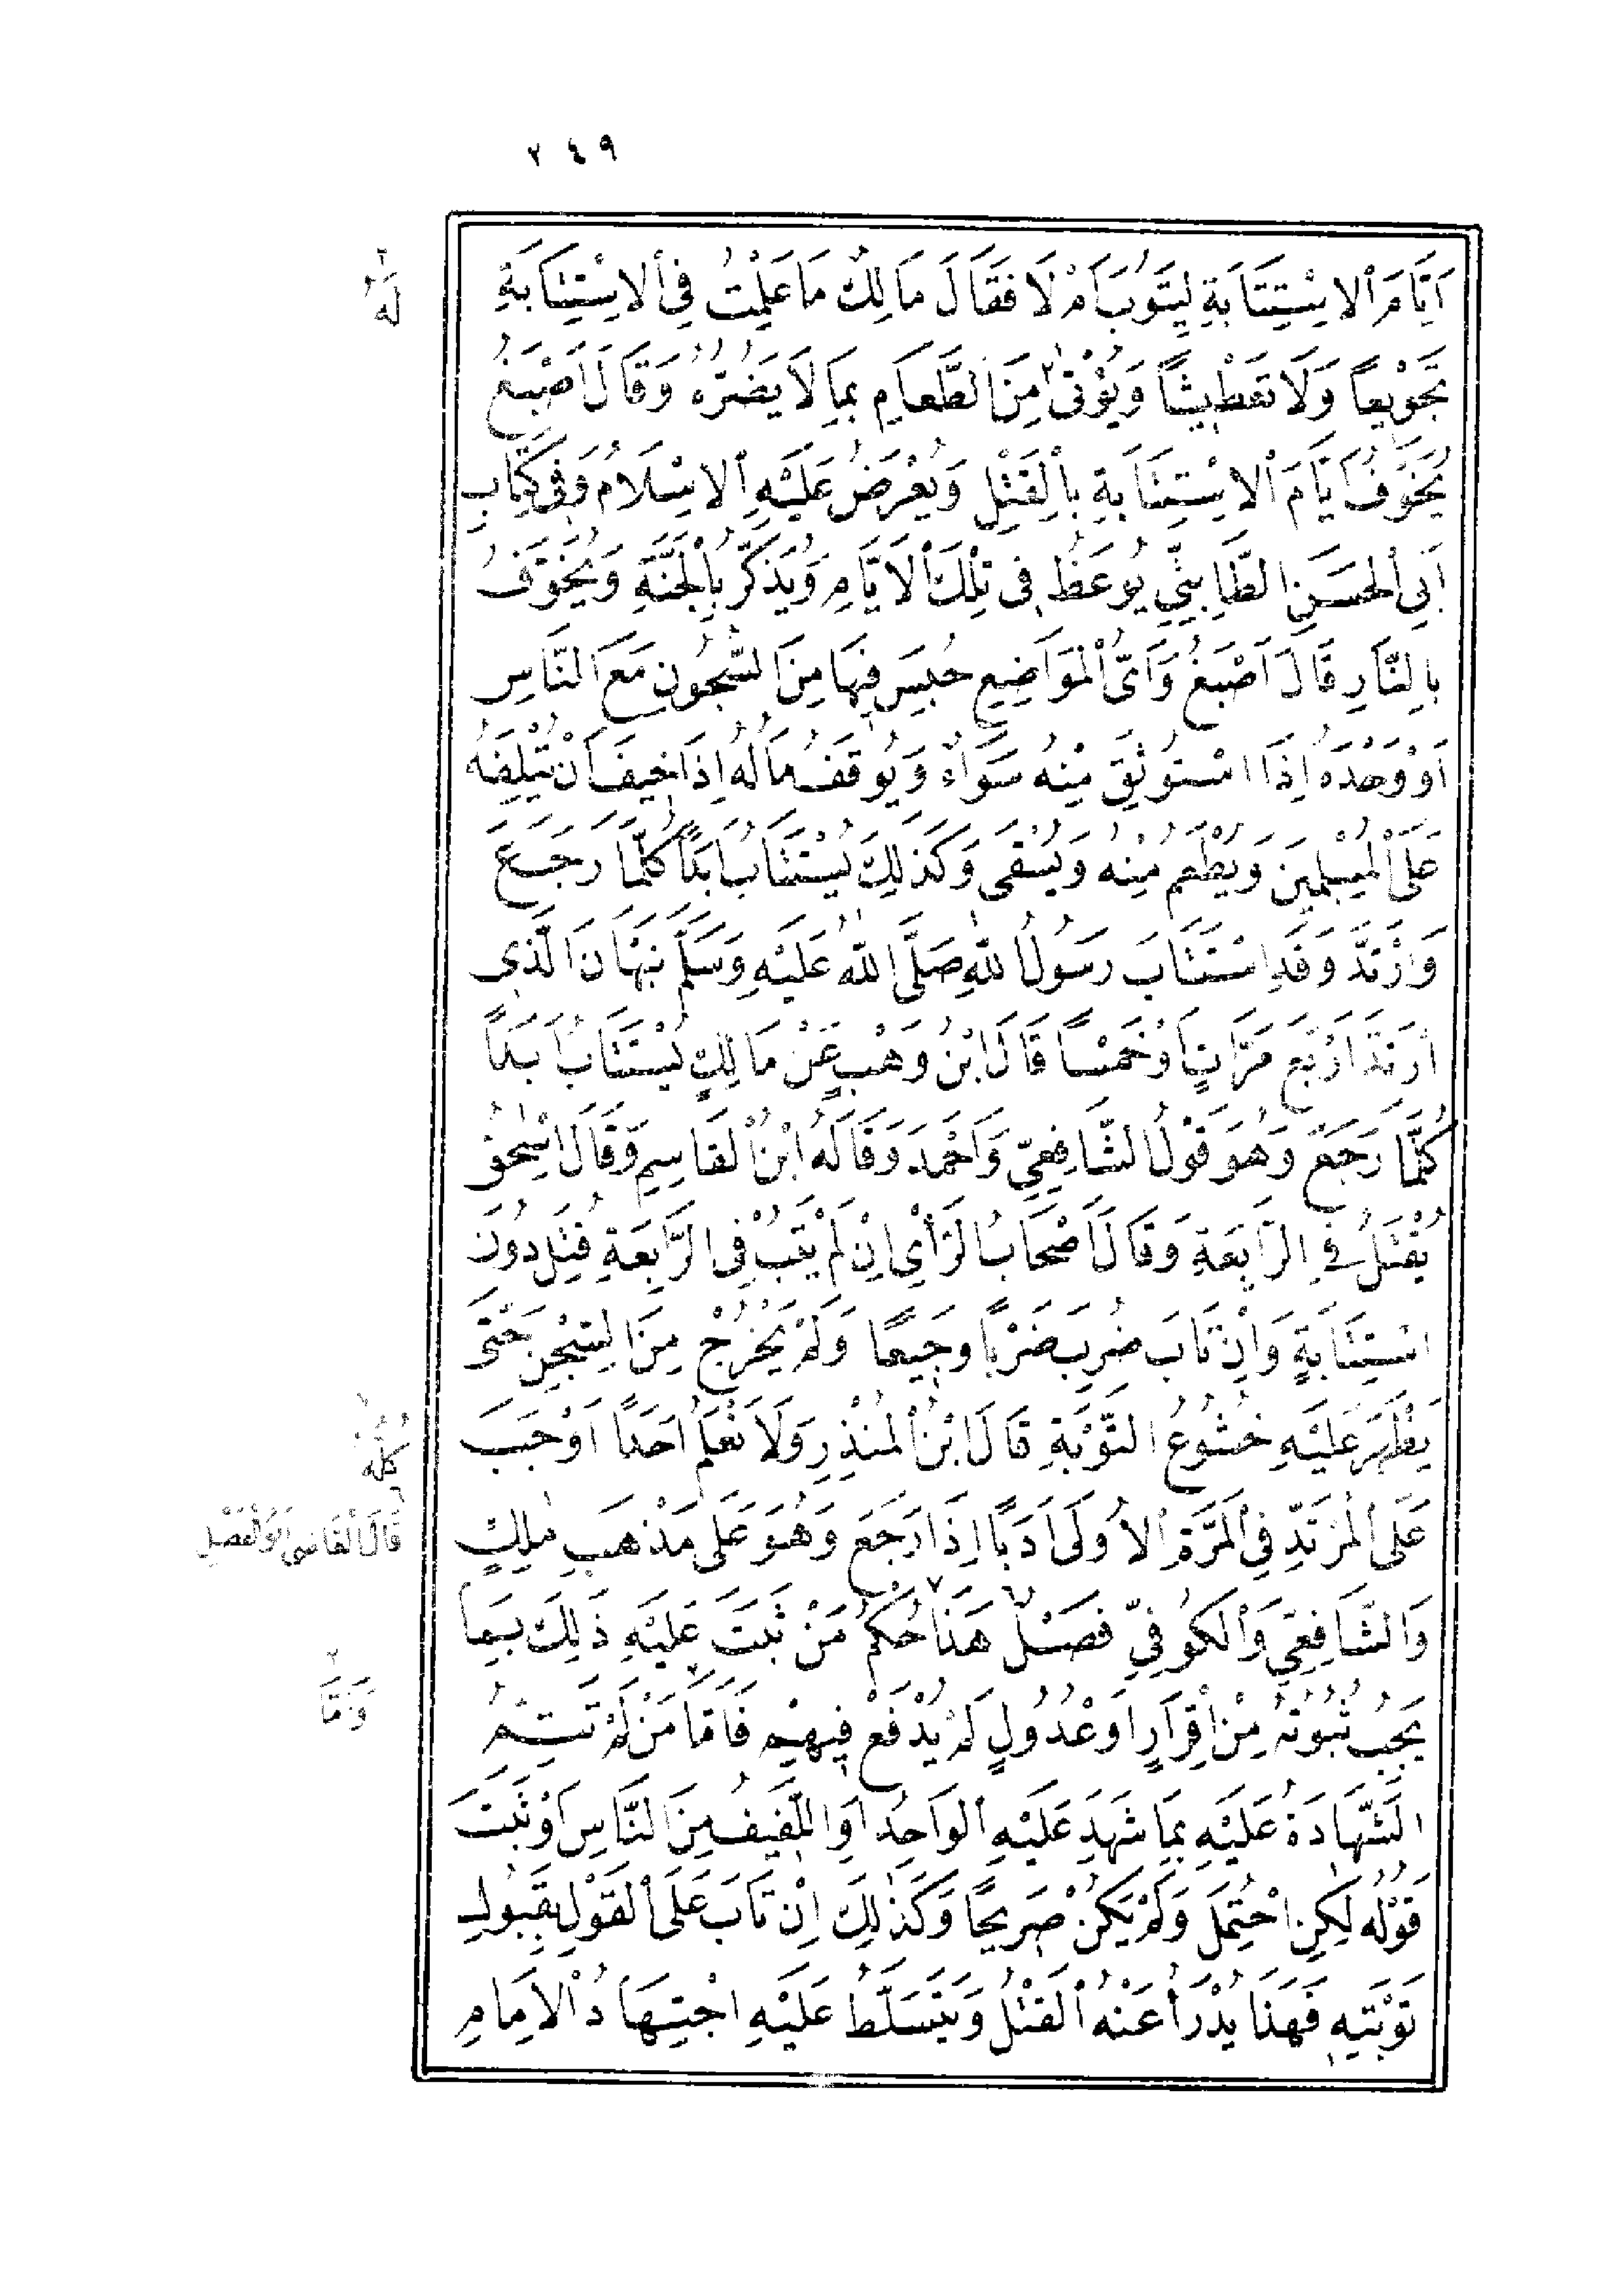 ٢٤٩
اَيَّامَ الْاِسْتِتَابَةِ لِيَتُوبَ اَمْ لَا فَقَالَ مَالِكٌ مَا عَلِمْتُ فِى الْاِسْتِتَابَةِ
تَجْوِيعًا وَلَا تَعْطِيشًا وَيُؤْتٰى مِنَ الطَّعَامِ بِمَا لَا يَضُرُّهُ وَقَالَ اَصْبَغُ
يُخَوَّفُ اَيَّامَ الْاِسْتِتَابَةِ بِالْقَتْلِ وَيُعْرَضُ عَلَيْهِ الْاِسْلَامُ وَفِى كِتَابِ
اَبِى الْحَسَنِ الطَّابِثِىِّ يُوعَظُ فِى تِلْكَ الْاَيَّامِ وَيُذَكَّرُ بِالْجَنَّةِ وَيُخَوَّفُ
بِالنَّارِ قَالَ اَصْبَغُ وَاَىُّ الْمَوَاضِعِ حُبِسَ فِيهَا مِنَ السُّجُونِ مَعَ النَّاسِ
اَوْ وَحْدَهُ اِذَا اسْتُوثِقَ مِنْهُ سَوَاءٌ وَيُوقَفُ مَالُهُ اِذَا خِيفَ اَنْ يُتْلِفَهُ
عَلَى الْمُسْلِمِينَ وَيُطْعَمُ مِنْهُ وَيُسْقَى وَكَذٰلِكَ يُسْتَتَابُ اَبَدًا كُلَّمَا رَجَعَ
وَارْتَدَّ وَقَدِ اسْتَتَابَ رَسُولُ اللّٰهِ صَلَّى اللّٰهُ عَلَيْهِ وَسَلَّمَ نَبْهَانَ الَّذِى
ارْتَدَّ اَرْبَعَ مَرَّاتٍ اَوْ خَمْسًا قَالَ ابْنُ وَهْبٍ عَنْ مَالِكٍ يُسْتَتَابُ اَبَدًا
كُلَّمَا رَجَعَ وَهُوَ قَوْلُ الشَّافِعِىِّ وَاَحْمَدَ وَقَالَهُ ابْنُ الْقَاسِمِ وَقَالَ اِسْحٰقُ
يُقْتَلُ فِى الرَّابِعَةِ وَقَالَ اَصْحَابُ الرَّأْىِ اِنْ لَمْ يَتُبْ فِى الرَّابِعَةِ قُتِلَ دُونَ
اسْتِتَابَةٍ وَاِنْ تَابَ ضُرِبَ ضَرْبًا وَجِيعًا وَلَمْ يَخْرُجْ مِنَ السِّجْنِ حَتَّى
يَظْهَرَ عَلَيْهِ خُشُوعُ التَّوْبَةِ قَالَ ابْنُ الْمُنْذِرِ وَلَا نَعْلَمُ اَحَدًا اَوْجَبَ
عَلَى الْمُرْتَدِّ فِى الْمَرَّةِ الْاُولَى اَدَبًا اِذَا رَجَعَ وَهُوَ عَلَى مَذْهَبِ مٰلِكٍ
وَالشَّافِعِىِّ وَالْكُوفِىِّ فَصْلٌ هٰذَا حُكْمُ مَنْ ثَبَتَ عَلَيْهِ ذٰلِكَ بِمَا
يَجِبُ ثُبُوتُهُ مِنْ اِقْرَارٍ اَوْ عُدُولٍ لَمْ يُدْفَعْ فِيهِمْ فَاَمَّا مَنْ لَمْ تَتِمَّ
الشَّهَادَةُ عَلَيْهِ بِمَا شَهِدَ عَلَيْهِ الْوَاحِدُ اَوِ اللَّفِيفُ مِنَ النَّاسِ اَوْ ثَبَتَ
قَوْلُهُ لٰكِنِ احْتُمِلَ وَلَمْ يَكُنْ صَرِيحًا وَكَذٰلِكَ اِنْ تَابَ عَلَى الْقَوْلِ بِقَبُولِ
تَوْبَتِهِ فَهٰذَا يُدْرَأُ عَنْهُ الْقَتْلُ وَيَتَسَلَّطُ عَلَيْهِ اجْتِهَادُ الْاِمَامِ
٢
لَهُ
كُلُّهُ
قَالَ الْقَاضِى اَبُو الْفَضْلِ
٢
وَاَمَّا